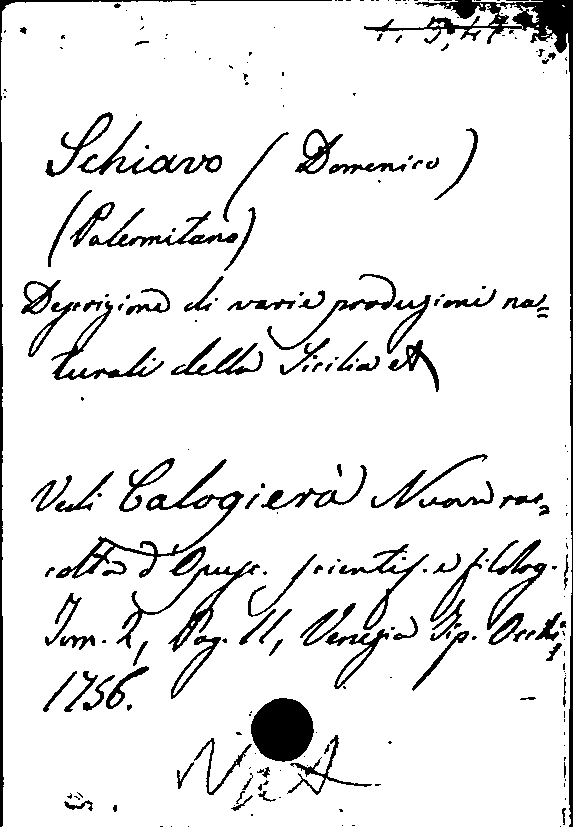 1. 5, 47
Schiavo (Domenico)
(Palermitano)
Descrizione di varie produzioni na=
turali della Sicilia et
Vedi Calogierà Nuova rac=
colta d'Opusc. scientif. e filolog.
Tom. 2, Pag. 11, Venezia Tip. Occhi
1756.